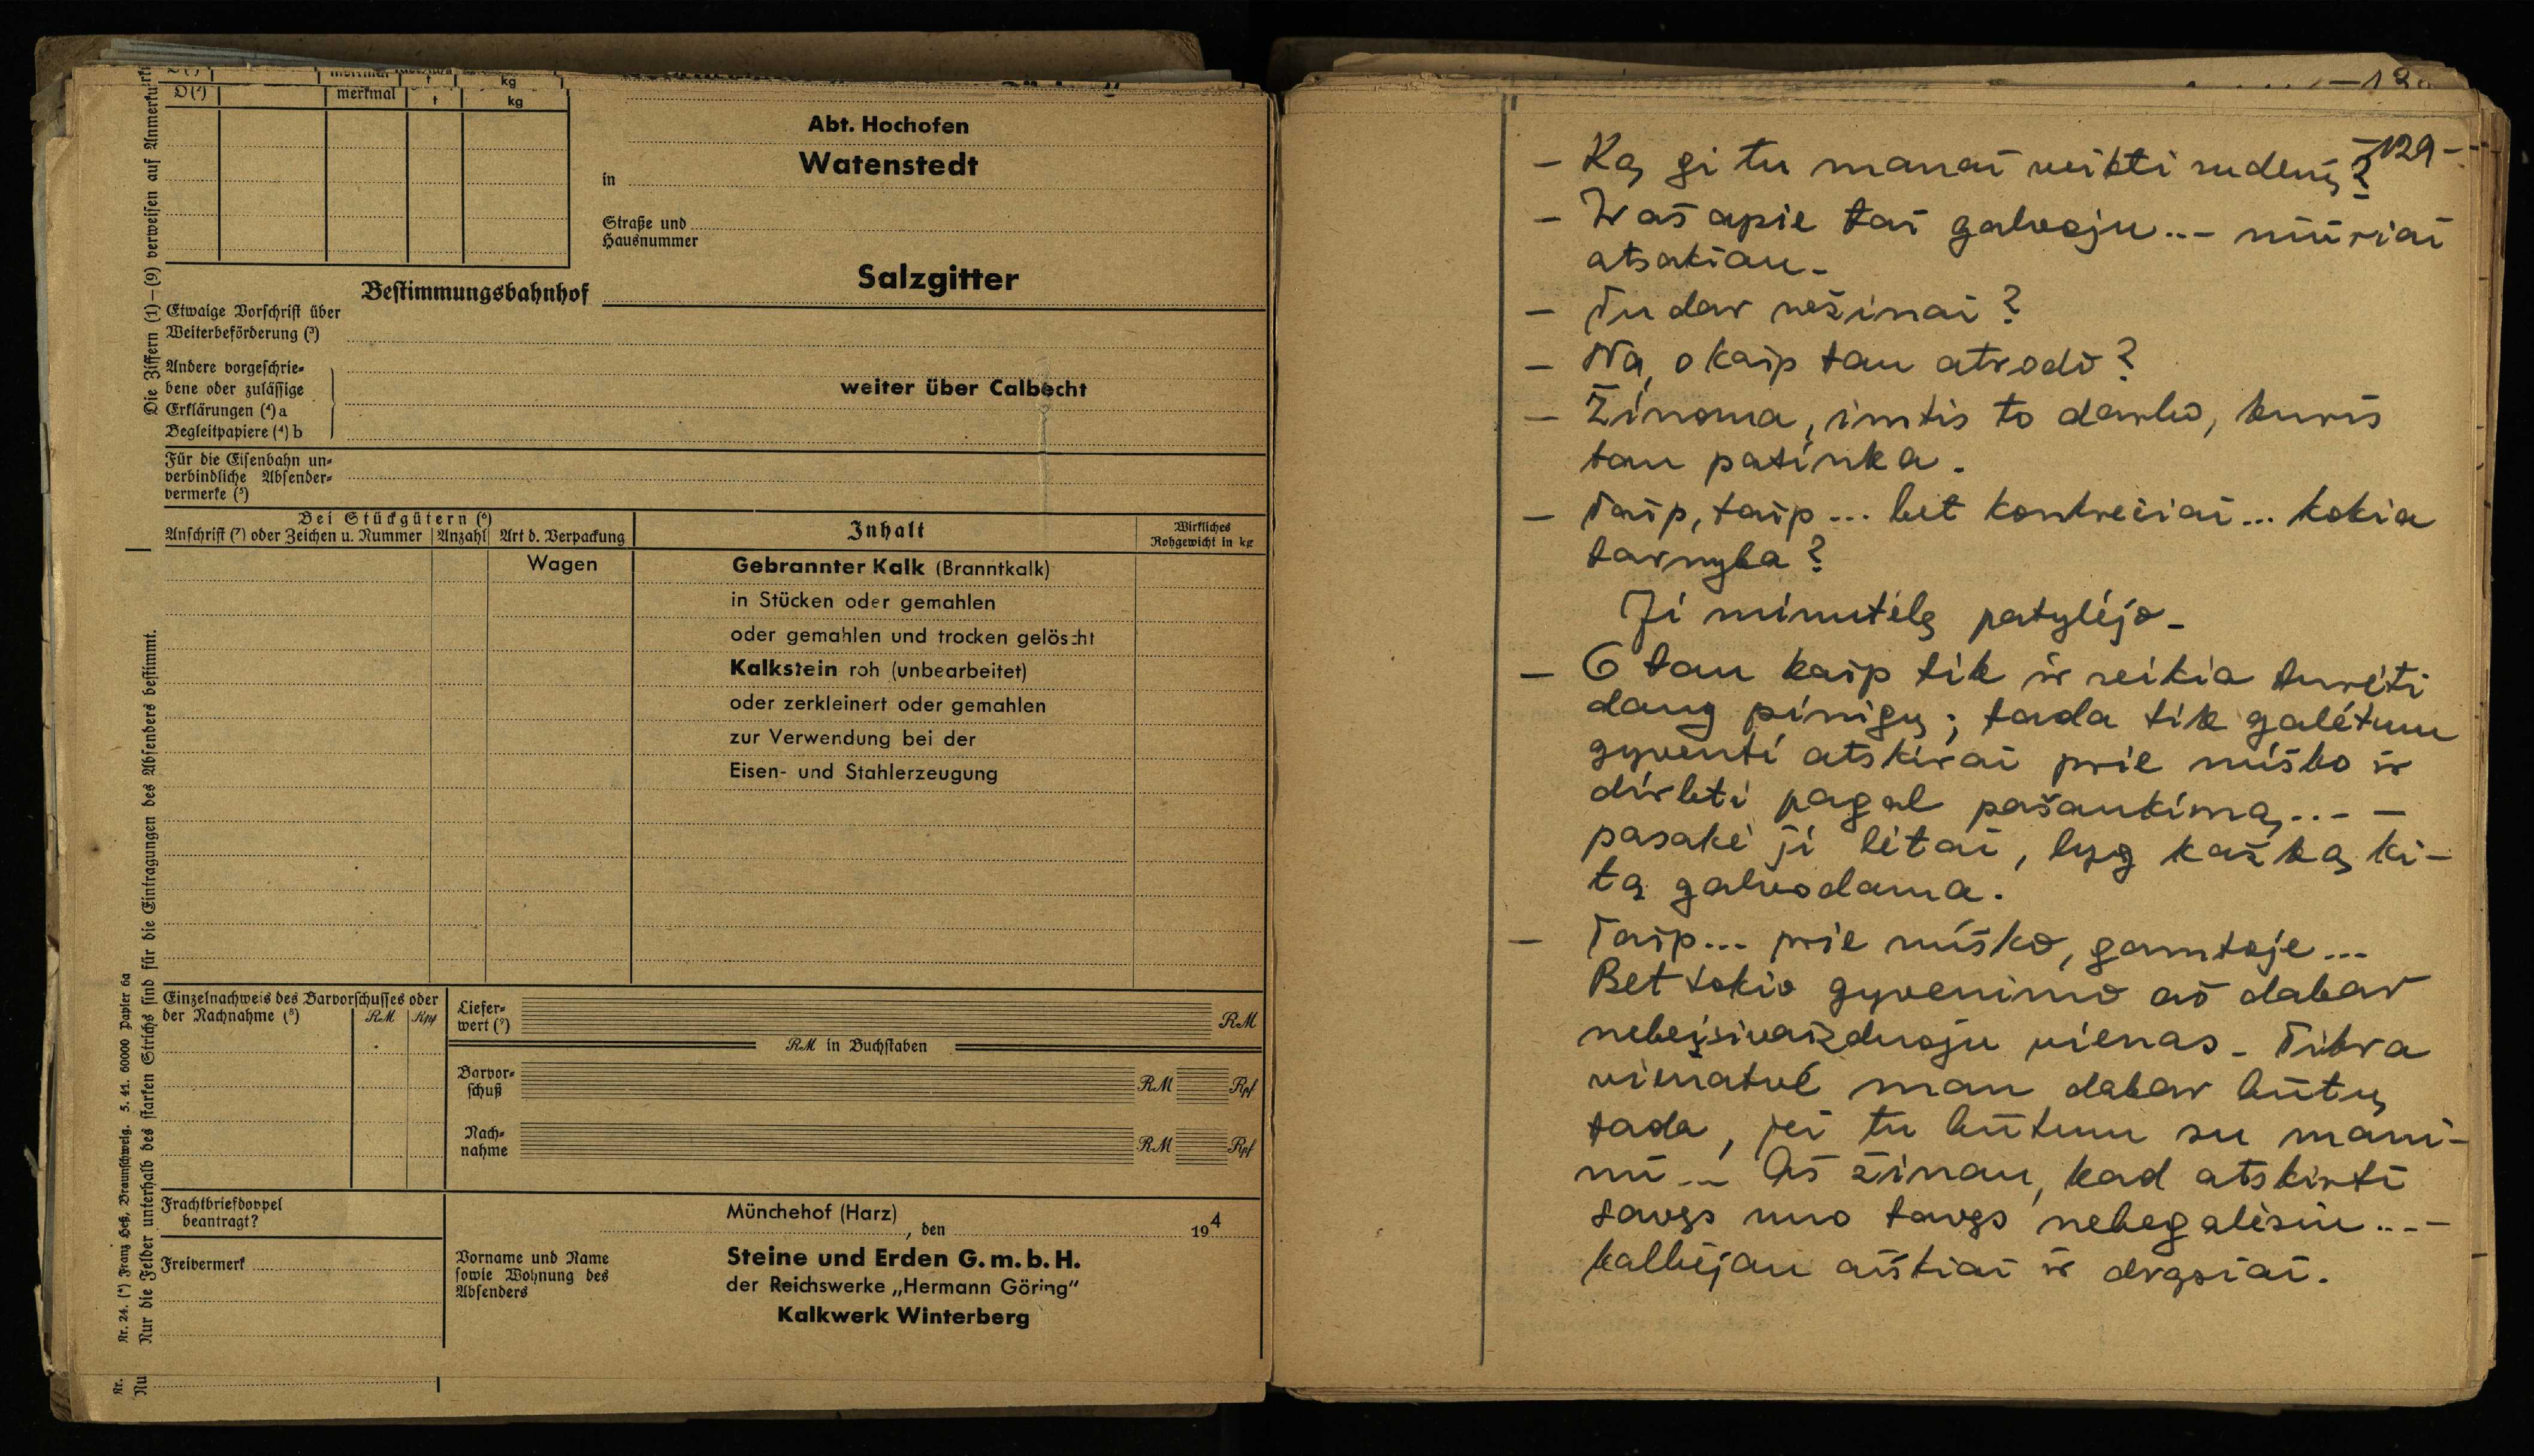 merkmal t kg
D(¹) merkmal t kg
Abt. Hochofen
Watenstedt
in
Straße und
Hausnummer
Salzgitter
Bestimmungsbahnhof
Etwaige Vorschrift über
Weiterbeförderung (³)
Andere vorgeschrie-
bene oder zulässige
Erklärungen (⁴) a
Begleitpapiere (⁴) b
weiter über Calbecht
Für die Eisenbahn un-
verbindliche Absender-
vermerke (⁵)
Bei Stückgütern (⁶)
Anschrift (⁷) oder Zeichen u. Nummer Anzahl Art d. Verpackung
Inhalt
Wirkliches
Rohgewicht in kg
Wagen
Gebrannter Kalk (Branntkalk)
in Stücken oder gemahlen
oder gemahlen und trocken gelöscht
Kalkstein roh (unbearbeitet)
oder zerkleinert oder gemahlen
zur Verwendung bei der
Eisen- und Stahlerzeugung
Einzelnachweis des Barvorschusses oder
der Nachnahme (⁸) RM Rpf
Liefer-
wert (⁹) RM
RM in Buchstaben
Barvor-
schuß RM Rpf
Nach-
nahme RM Rpf
Frachtbriefdoppel
beantragt?
Freivermerk
Münchehof (Harz)
, den 194
Vorname und Name
sowie Wohnung des
Absenders
Steine und Erden G.m.b.H.
der Reichswerke „Hermann Göring"
Kalkwerk Winterberg
Die Ziffern (1)–(9) verweisen auf
Nur die Felder unterhalb des starken Strichs sind für die Eintragungen des Absenders bestimmt.
Nr. 24. (*) Franz Heß, Braunschweig. 5. 41. 60000 Papier 6a
Nr.
Nu
-129-
– Ką gi tu manai veikti rudenį?
– Ir aš apie tai galvoju... – niūriai
atsakiau.
– Tu dar nežinai?
– Na, o kaip tau atrodo?
– Žinoma, imtis to darbo, kuris
tau patinka.
– Taip, taip... bet konkrečiai... kokia
tarnyba?
Ji minutėlę patylėjo.
– O tau kaip tik ir reikia turėti
daug pinigų; tada tik galėtum
gyventi atskirai prie miško ir
dirbti pagal pašaukimą... –
pasakė ji lėtai, lyg kažką ki-
tą galvodama.
– Taip... prie miško, gamtoje...
Bet tokio gyvenimo aš dabar
nebeįsivaizduoju vienas. Tikra
vienatvė man dabar būtų
tada, jei tu būtum su mani-
mi... Aš žinau, kad atskirti
savęs nuo tavęs nebegalėsiu... –
kalbėjau aiškiai ir drąsiai.